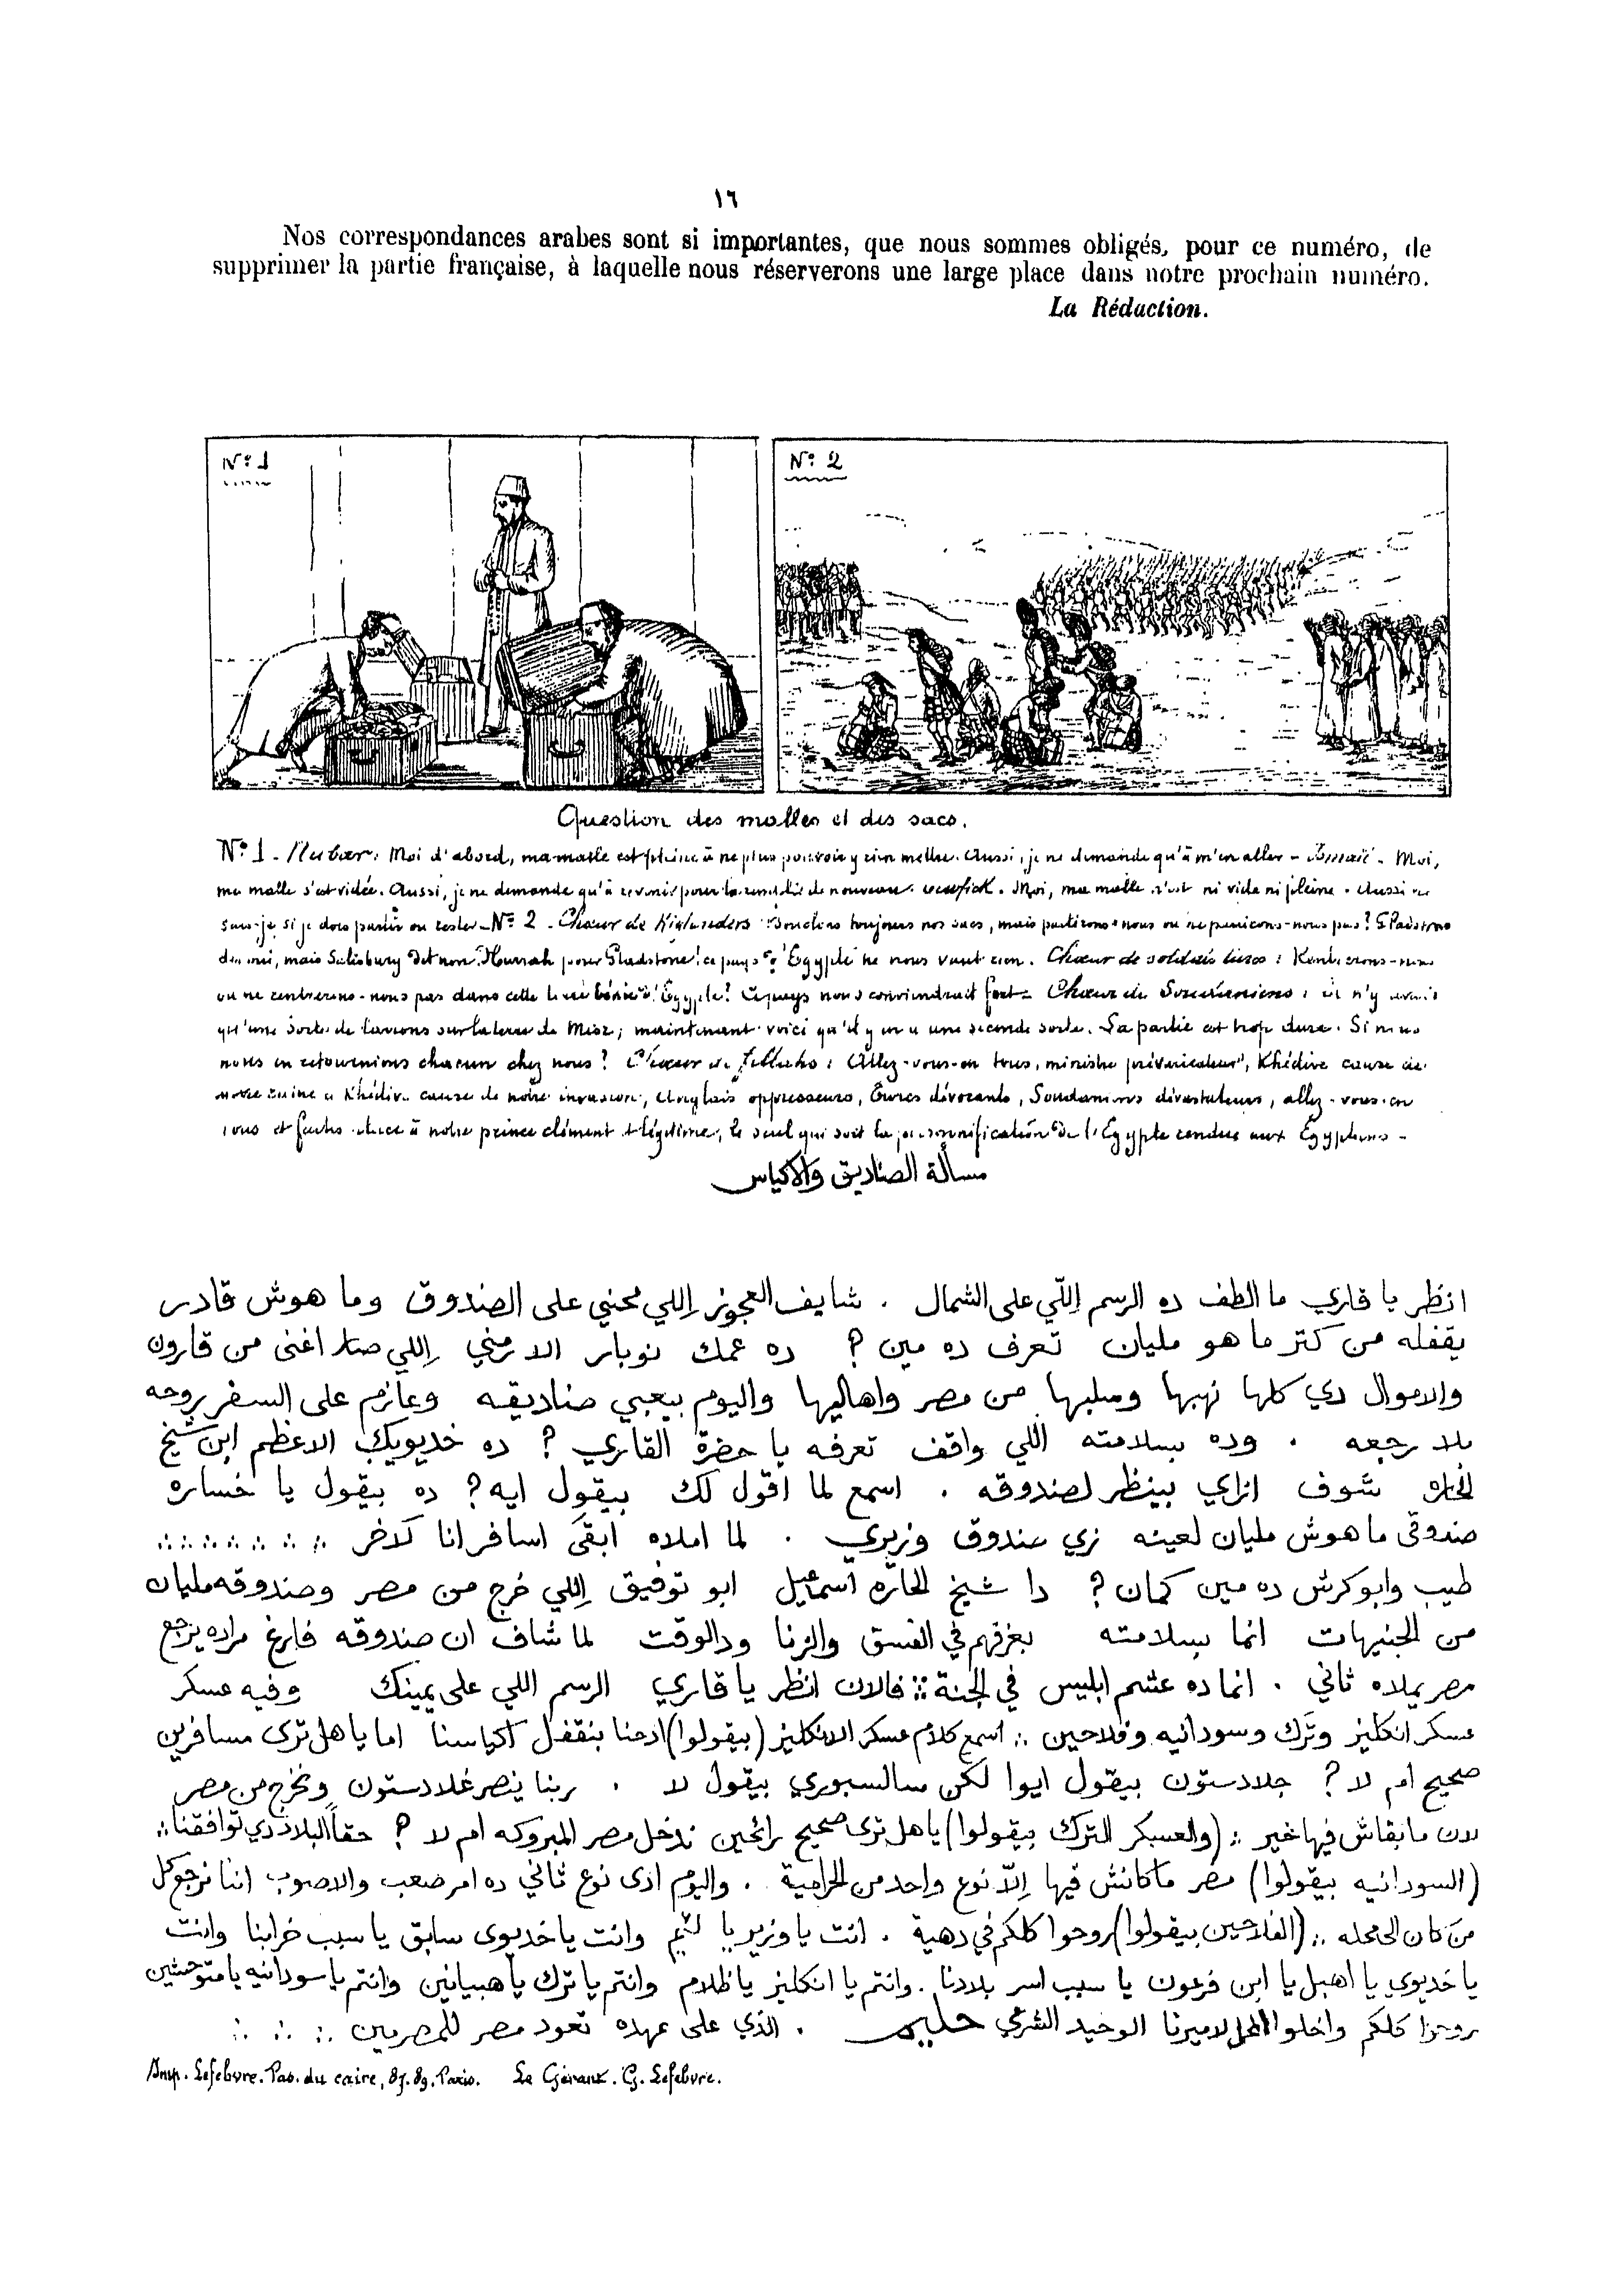 ١٦
Nos correspondances arabes sont si importantes, que nous sommes obligés, pour ce numéro, de
supprimer la partie française, à laquelle nous réserverons une large place dans notre prochain numéro.
La Rédaction.
Nº 1
Nº 2
Question des malles et des sacs.
Nº 1 - Nubar: Moi d'abord, ma malle est pleine à ne plus pouvoir y rien mettre. Aussi, je ne demande qu'à m'en aller - Ismaïl - Moi,
ma malle s'est vidée. Aussi, je ne demande qu'à revenir pour la remplir de nouveau. Tewfick. Moi, ma malle n'est ni vide ni pleine. Aussi ne
sais-je si je dois partir ou rester - Nº 2 - Chœur de Highlanders: Bouclons toujours nos sacs, mais partirons-nous ou ne partirons-nous pas? Gladstone
dit oui, mais Salisbury dit non. Hurrah pour Gladstone! ce pays d'Egypte ne nous vaut rien. Chœur de soldats turcs: Rentrerons-nous
ou ne rentrerons-nous pas dans cette terre bénie d'Egypte? Ce pays nous conviendrait fort - Chœur de Soudaniens: il n'y avait
qu'une sorte de larrons sur la terre de Misr; maintenant voici qu'il y en a une seconde sorte. La partie est trop dure. Si nous
nous en retournions chacun chez nous? Chœur de fellahs: Allez-vous-en tous, ministre prévaricateur, Khédive cause de
notre ruine et Khédive cause de notre invasion, Anglais oppresseurs, Turcs dévorants, Soudaniens dévastateurs, allez-vous-en
tous et faites place à notre prince clément et légitime, le seul qui soit la personnification de l'Egypte rendue aux Egyptiens -
مسألة الصناديق والاكياس
انظر يا قاري ما الطف ده الرسم اللّي على الشمال . شايف العجوز اللي محني على الصندوق وما هوش قادر
يقفله من كتر ما هو مليان تعرف ده مين ? ده عمك نوبار الارمني اللي صار اغنى من قارون
والاموال دي كلها نهبها وسلبها من مصر واهاليها واليوم بيعبي صناديقه وعازم على السفر بروحه
بلا رجعه . وده بسلامته اللي واقف تعرفه يا حضرة القاري ? ده خديويك الاعظم ابن شيخ
الحاره شوف ازاي بينظر لصندوقه . اسمع لما اقول لك بيقول ايه ? ده بيقول يا خساره
صندوقي ما هوش مليان لعينه زي صندوق وزيري . لما املاه ابقى اسافر انا لاخر
طيب وابو كرش ده مين كمان ? دا شيخ الحاره اسماعيل ابو توفيق اللي خرج من مصر وصندوقه مليان
من الجنيهات انما بسلامته بعزقهم في الفسق والزنا ودالوقت لما شاف ان صندوقه فارغ مراده يرجع
مصر يملاه ثاني . انما ده عشم ابليس في الجنة فالان انظر يا قاري الرسم اللي على يمينك وفيه عسكر
عسكر انكليز وترك وسودانيه وفلاحين اسمع كلام عسكر الانكليز (بيقولوا) ادحنا بنقفل اكياسنا اما يا هل ترى مسافرين
صحيح ام لا ? جلادستون بيقول ايوا لكن سالسبوري بيقول لا . ربنا ينصر غلادستون ونخرج من مصر
لان ما بقاش فيها خير (والعسكر الترك بيقولوا) يا هل ترى صحيح رائحين ندخل مصر المبروكه ام لا ? حقاً البلاد دي توافقنا
(السودانيه بيقولوا) مصر ما كانش فيها الّا نوع واحد من الحرامية . واليوم ادى نوع ثاني ده امر صعب والاصوب اننا نرجع كل
من كان الى محله (الفلاحين بيقولوا) روحوا كلكم في دهية . انت يا وزير يا لئيم وانت يا خديوي سابق يا سبب خرابنا وانت
يا خديوي يا اهبل يا ابن فرعون يا سبب اسر بلادنا . وانتم يا انكليز يا ظلام وانتم يا ترك يا هبيانين وانتم يا سودانيه يا متوحشين
روحوا كلكم واخلوا المحل لاميرنا الوحيد الشرعي حليم . الذي على عهده تعود مصر للمصريين
Imp. Lefebvre. Pas. du caire, 87.89. Paris. Le Gérant. G. Lefebvre.